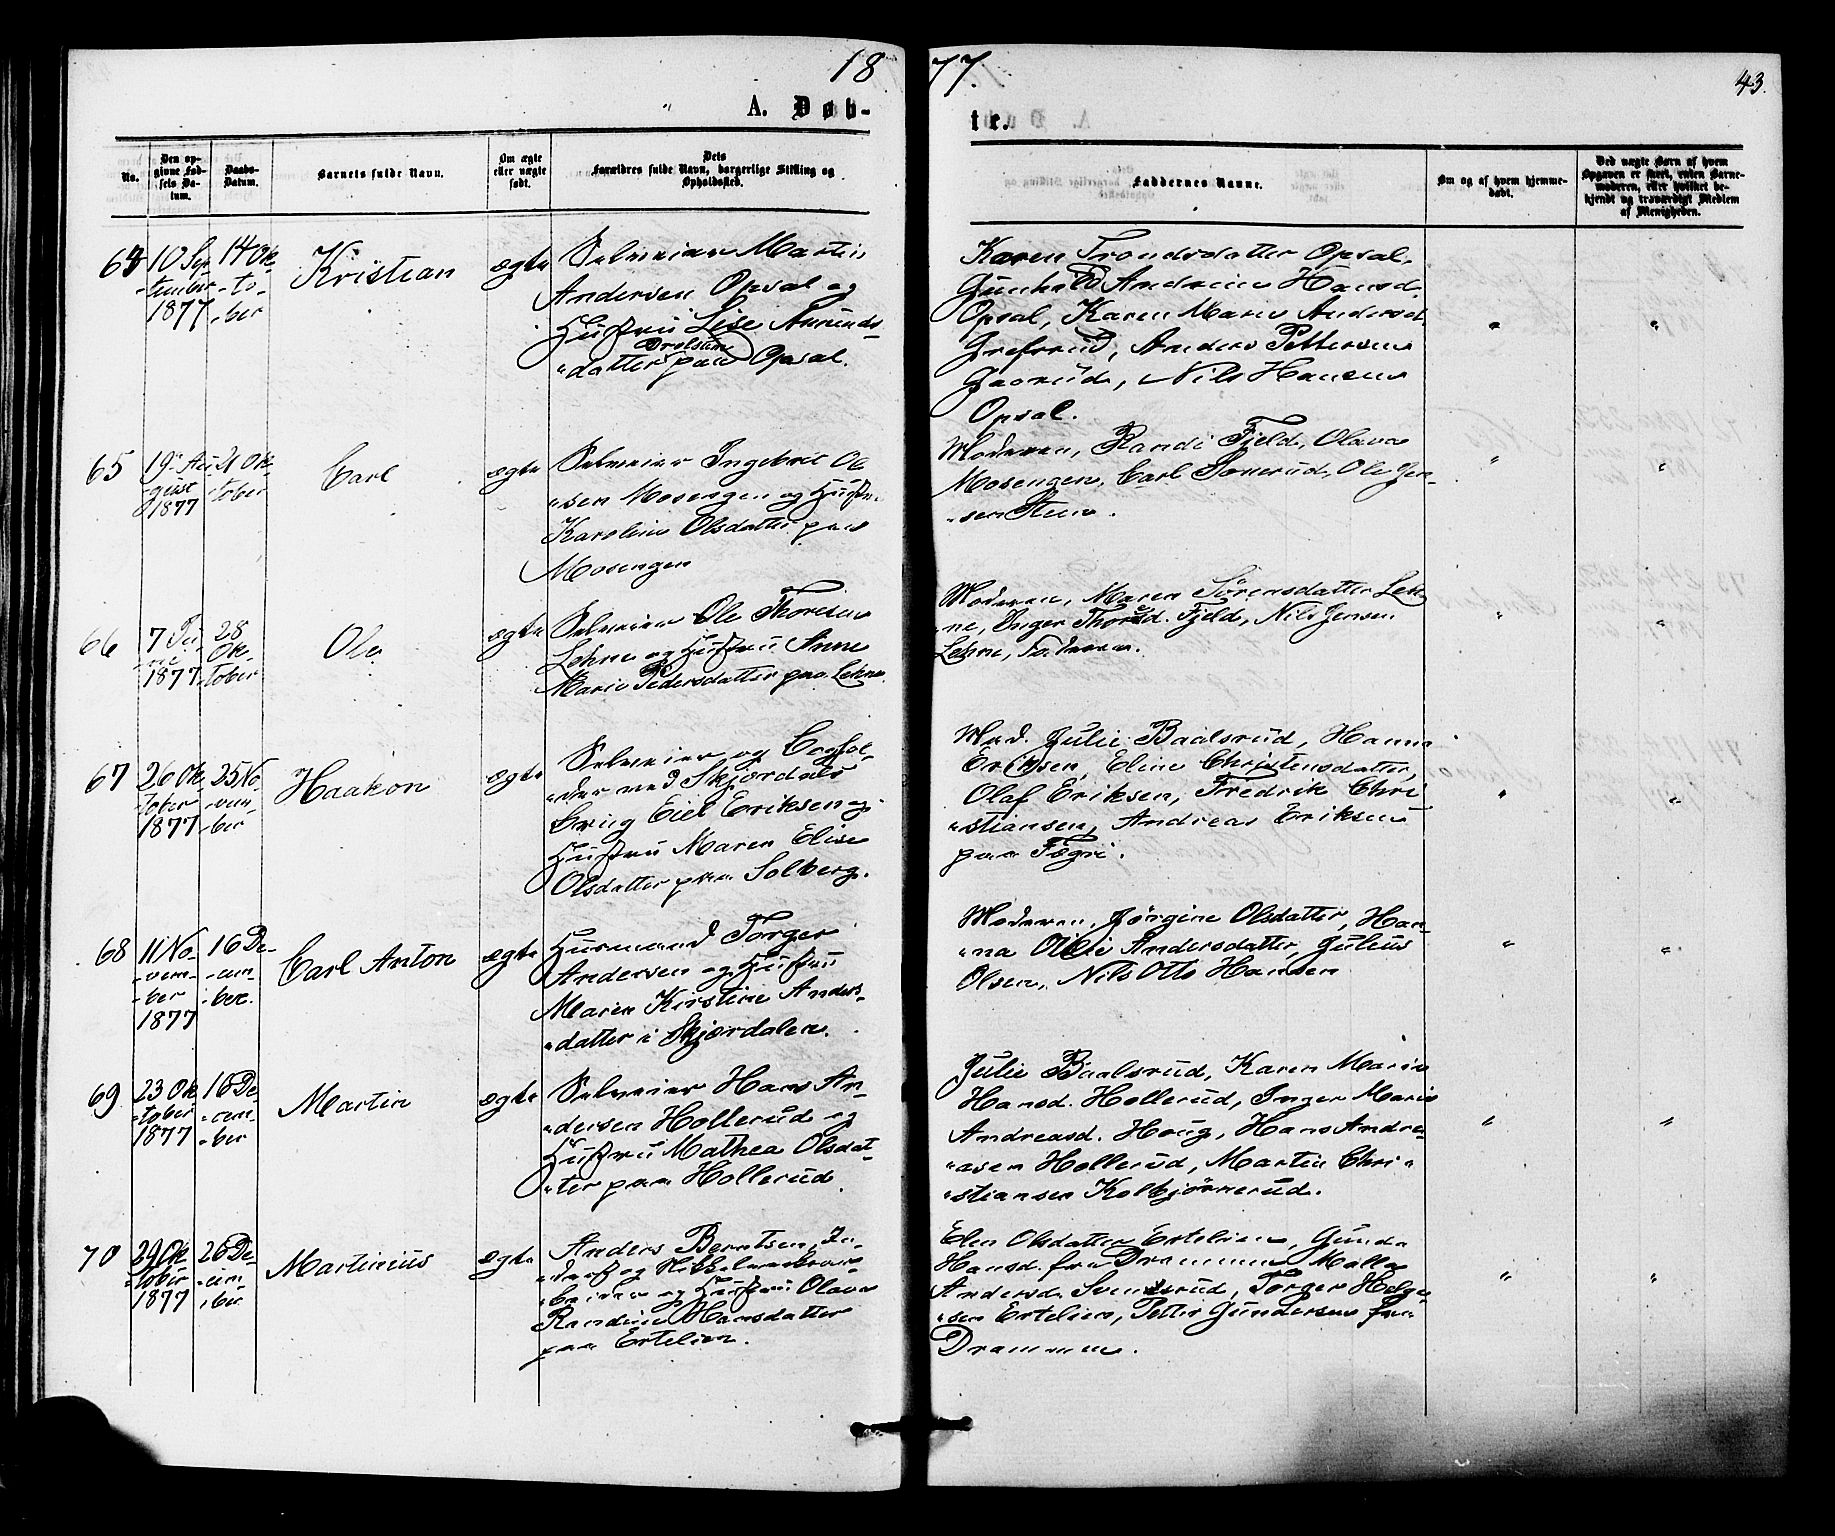 1877.
43.
A. Døb-
te.
No.
Den op-
givne Fød-
sels Da-
tum.
Daabs-
Datum.
Barnets fulde Navn.
Om ægte
eller uægte
født.
Dets
Forældres fulde Navn, borgerlige Stilling og
Opholdssted.
Faddernes Navne.
Om og af hvem hjemme-
døbt.
Ved uægte Børn af hvem
Opgaven er skeet, enten Barne-
moderen, eller hvilket be-
kjendt og troværdigt Medlem
af Menigheden.
64
10 Sep-
tember
1877
14 Ok-
to-
ber
Kristian
ægte
Selveier Martin
Andersen Opsal og
Hustru Lise Amunds-
datter paa Opsal.
Karen Trondsdatter Opsal,
Gunhild Andrine Hansd.
Opsal, Karen Marie Andersd.
Grefsrud, Anders Pettersen
Gaarud, Nils Hansen
Opsal.
"
"
65
19 Au-
gust
1877
21 Ok-
tober
Carl
ægte
Selveier Ingebret Ol-
sen Mosengen og Hustru
Karoline Olsdatter paa
Mosengen
Moderen, Randi Fjeld, Olava
Mosengen, Carl Sonerud, Ole Jen-
sen Steen.
"
"
66
7 Ju-
ni
1877
28
Ok-
tober
Ole
ægte
Selveier Ole Thoresen
Lehne og Hustru Anne
Marie Pedersdatter paa Lehne.
Moderen, Maren Sørensdatter Leh-
ne, Inger Thorsd. Fjeld, Nils Jensen
Lehne, Faderen.
"
"
67
26 Ok-
tober
1877
25 No-
vem-
ber
Haakon
ægte
Selveier og Boghol-
der ved Skjærdals
Brug Eiel Eriksen og
Hustru Maren Elise
Olsdatter paa Solberg.
Mad. Julie Baalsrud, Hanna
Eriksen, Eline Christensdatter,
Olaf Eriksen, Fredrik Chri-
stiansen, Andreas Eriksen
paa Fægri.
"
"
68
11 No-
vem-
ber
1877
16 De-
cem-
ber.
Carl Anton
ægte
Husmand Torger
Andersen og Hustru
Maren Kirstine Anders-
datter i Skjærdalen.
Moderen, Jørgine Olsdatter, Han-
na Olie Andersdatter, Julius
Olsen, Nils Otto Hansen
"
"
69
23 Ok-
tober
1877
16 De-
cem-
ber
Martin
ægte
Selveier Hans An-
dersen Hollerud og
Hustru Mathea Olsdat-
ter paa Hollerud.
Julie Baalsrud, Karen Marie
Hansd. Hollerud, Inger Marie
Andreasd. Houg, Hans Andre-
asen Hollerud, Martin Chri-
stiansen Kolbjørnerud.
"
"
70
29 Ok-
tober
1877
26 De-
cem-
ber
Martinius
ægte
Anders Berntsen, In-
derst og Nikkelverksar-
beider og Hustru Olava
Randine Hansdatter
paa Ertelien.
Elen Olsdatter Ertelien, Gunda
Hansd. fra Drammen, Malla
Andersd. Svensrud, Torger Helge-
sen Ertelien, Petter Gundersen fra
Drammen.
"
"